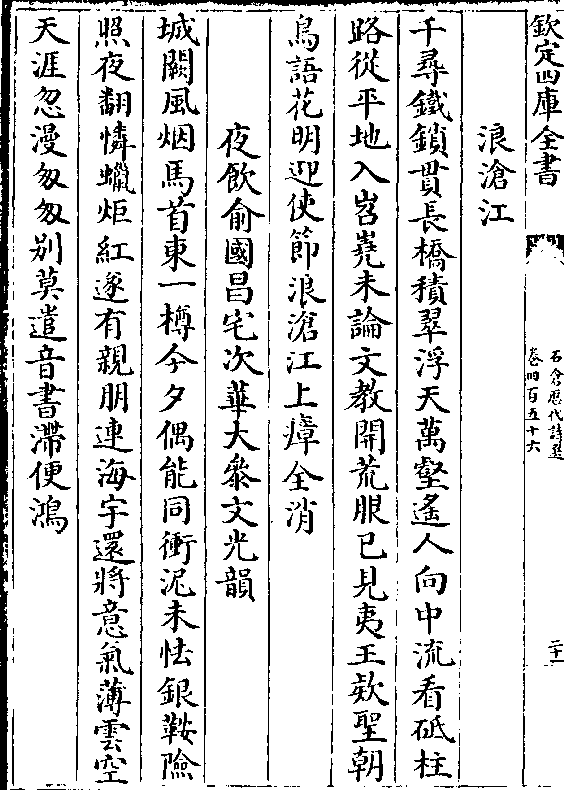 欽定四庫全書
石倉歷代詩選
卷四百五十六
二十一
浪滄江
千尋鐵鎖貫長橋積翠浮天萬壑遙人向中流看砥柱
路從平地入岧嶤未論文教開荒服已見夷王欵聖朝
鳥語花明迎使節浪滄江上瘴全消
夜飲俞國昌宅次華大叅文光韻
城闕風烟馬首東一樽今夕偶能同衝泥未怯銀鞍險
照夜翻憐蠟炬紅遂有親朋連海宇還將意氣薄雲空
天涯忽漫匆匆别莫遣音書滯便鴻